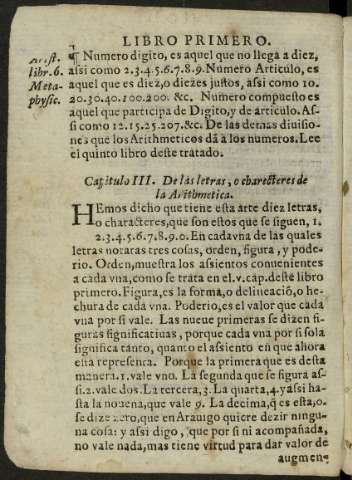 LIBRO PRIMERO.
Arist.
libr. 6.
Meta-
physic.
¶ Numero digito, es aquel que no llega a diez,
assi como 2.3.4.5.6.7.8.9. Numero Articulo, es
aquel que es diez, o diezes justos, assi como 10.
20.30.40.100.200. &c. Numero compuesto es
aquel que participa de Digito, y de articulo. As-
si como 12.15.25.207. &c. De las demas diuisio-
nes que los Arithmeticos dã a los numeros. Lee
el quinto libro deste tratado.
Capitulo III. De las letras, o charecteres de
la Arithmetica.
HEmos dicho que tiene esta arte diez letras,
o characteres, que son estos que se siguen, 1,
2.3.4.5.6.7.8.9.0. En cada vna de las quales
letras notaras tres cosas, orden, figura, y pode-
rio. Orden, muestra los assientos conuenientes
a cada vna, como se trata en el .v. cap. deste libro
primero. Figura, es la forma, o delineaciõ, o he-
chura de cada vna. Poderio, es el valor que cada
vna por si vale. Las nueue primeras se dizen fi-
guras significatiuas, porque cada vna por si sola
significa tanto, quanto el assiento en que ahora
esta representa. Porque la primera que es desta
manera .1. vale vno. La segunda que se figura as-
si .2. vale dos. La tercera, 3. La quarta, 4. y assi ha-
sta la nouena, que vale 9. La decima, q̃ es esta, 0.
se dize zero, que en Arauigo quiere dezir ningu-
na cosa: y assi digo, que por si ni acompañada,
no vale nada, mas tiene virtud para dar valor de
augmen-